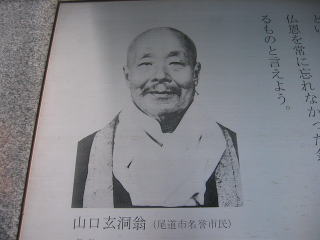 仏恩を常に忘れなかった
るものと言えよう。
山口玄洞翁（尾道市名誉市民）